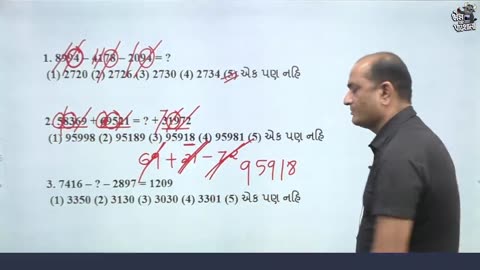 1. 8994 – 4178 – 2094 = ?
(1) 2720 (2) 2726 (3) 2730 (4) 2734 (5) એક પણ નહિ
2. 58369 + 69521 = ? + 31972
(1) 95998 (2) 95189 (3) 95918 (4) 95981 (5) એક પણ નહિ
69 + 21 – 72 95918
3. 7416 – ? – 2897 = 1209
(1) 3350 (2) 3130 (3) 3030 (4) 3301 (5) એક પણ નહિ